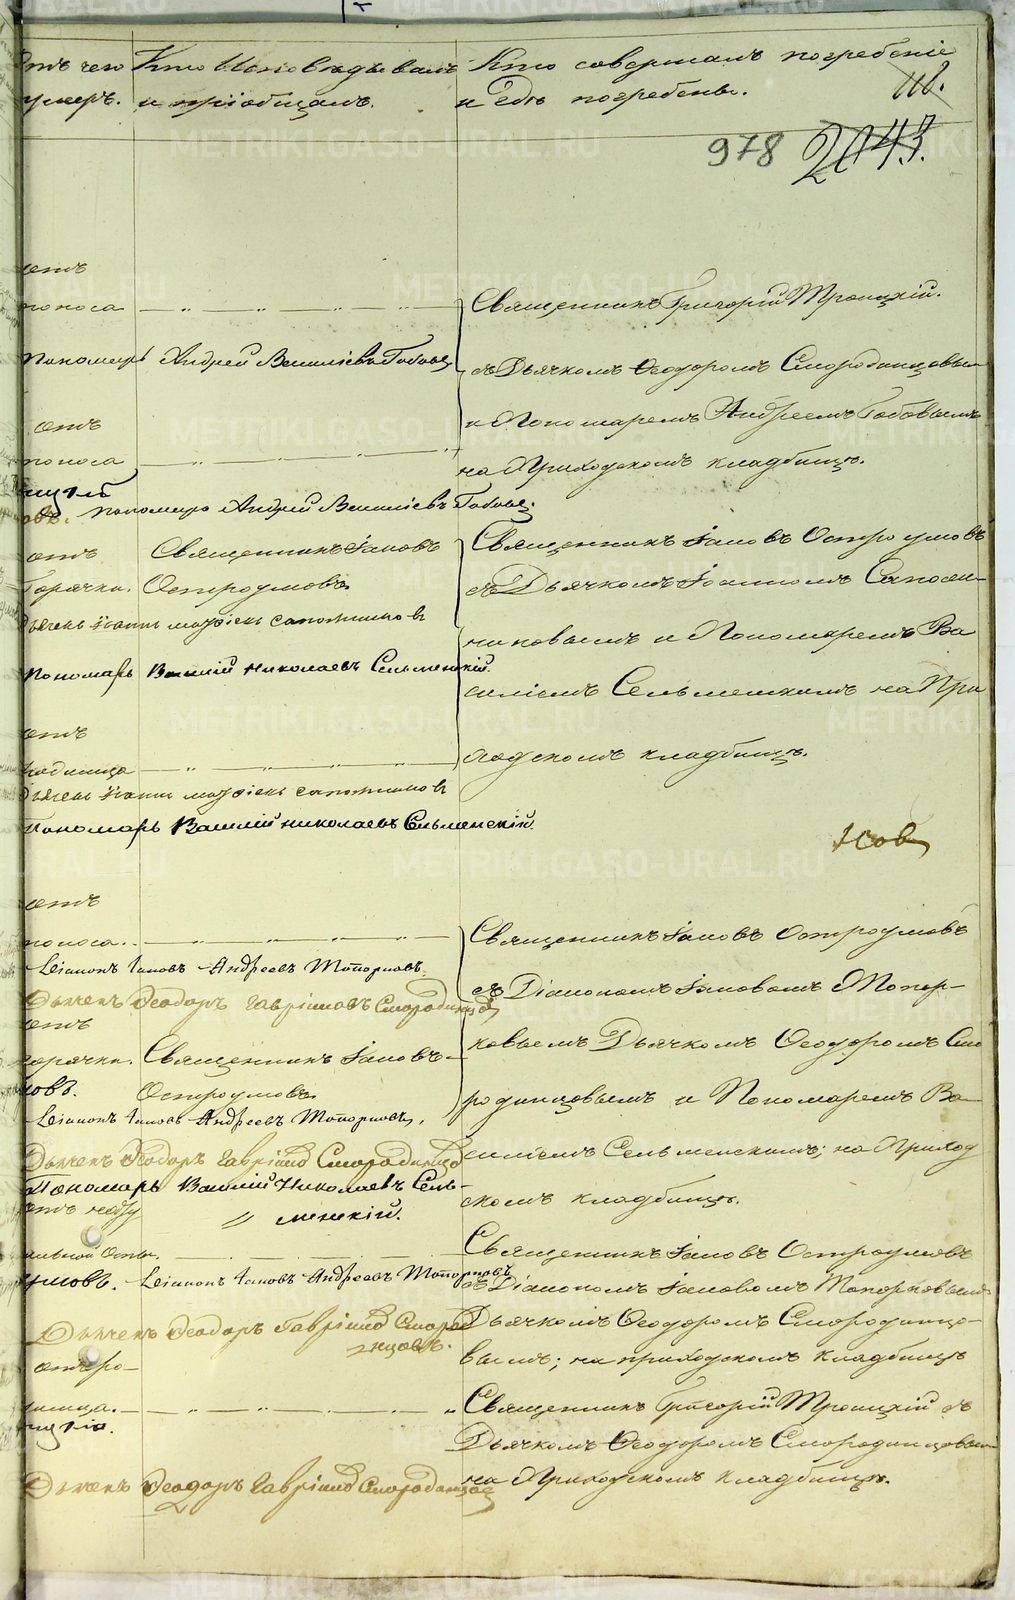 Отъ чего Кто Исповѣдывалъ Кто совершалъ погребеніе
умеръ. и пріобщалъ. и гдѣ погребены.
978 2043.
отъ
поноса Священникъ Григорій Троицкій.
Пономарь Андрей Василіевъ съ Дьячкомъ Ѳеодоромъ Смородинцовымъ
отъ и Пономаремъ Андреемъ
поноса на Приходскомъ кладбищѣ.
пономарь Андрей Василіевъ
отъ Священникъ Іаковъ Священникъ Іаковъ Остроумовъ
Горячки. Остроумовъ съ Дьячкомъ Іоанномъ Сапож-
Дьячекъ Іоаннъ Сапожниковъ
никовымъ и Пономаремъ Ва
Пономарь Василій Николаевъ Сельменскій.
силіемъ Сельменскимъ на При
отъ
родимца ходскомъ кладбищѣ.
Дьячекъ Іоаннъ Сапожниковъ
Пономарь Василій Николаевъ Сельменскій.
отъ
поноса. Священникъ Іаковъ Остроумовъ
Діаконъ Іаковъ Андреевъ Топорковъ.
съ Діакономъ Іаковомъ Топор-
Дьячекъ Ѳеодоръ Гавріиловъ Смородинцовъ
отъ
горячки. Священникъ Іаковъ ковымъ Дьячкомъ Ѳеодоромъ Смо
Остроумовъ родинцовымъ и Пономаремъ Ва-
Діаконъ Іаковъ Андреевъ Топорковъ,
Дьячекъ Ѳеодоръ Гавріиловъ Смородинцовъ силіемъ Сельменскимъ; на Приход
Пономарь Василій Николаевъ Сель-
менскій. скомъ кладбищѣ.
Оспы. Священникъ Іаковъ Остроумовъ
Діаконъ Іаковъ Андреевъ Топорковъ
съ Діакономъ Іаковомъ Топорковымъ
Дьячекъ Ѳеодоръ Гавріиловъ Смороди Дьячкомъ Ѳеодоромъ Смородинцо-
нцовъ.
отъ ро- вымъ; на приходскомъ кладбищѣ
димца. Священникъ Григорій Троицкій съ
Дьячкомъ Ѳеодоромъ Смородинцовымъ
Дьячекъ Ѳеодоръ Гавріиловъ Смородинцовъ на Приходскомъ кладбищѣ.
METRIKI.GASO-URAL.RU